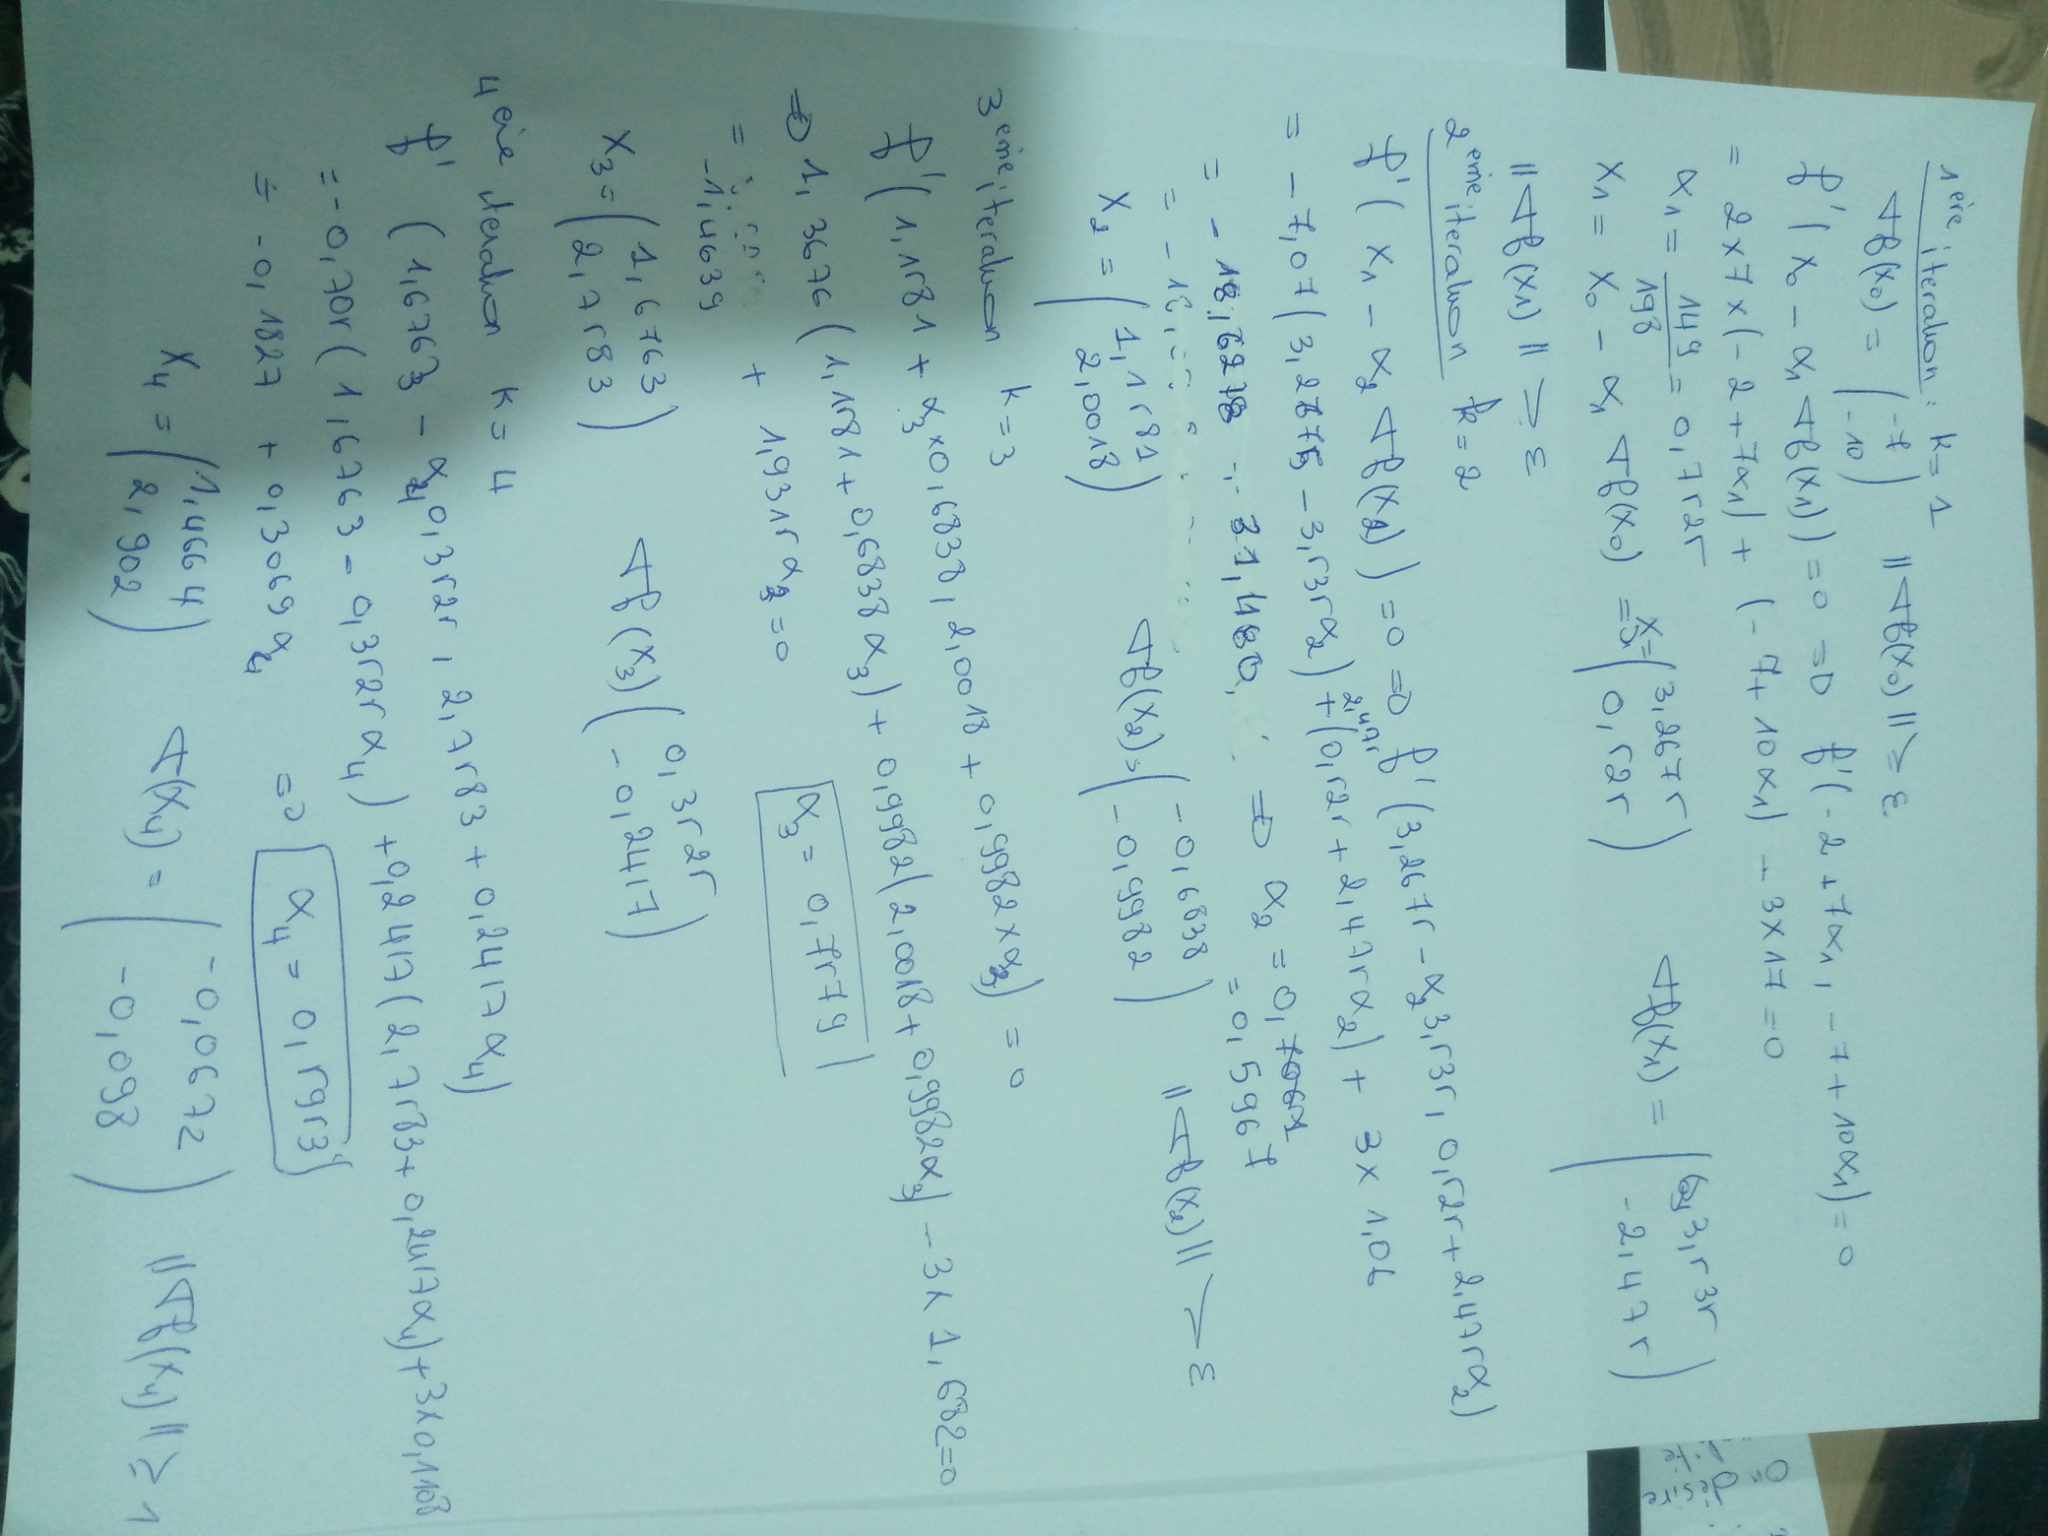 1ère iteration : k = 1
∇f(x₀) = (-7 -10) ||∇f(x₀)|| > ε
f'(x₀ - α₁ ∇f(x₁)) = 0 => f'(-2 + 7α₁, -7 + 10α₁) = 0
= 2×7×(-2 + 7α₁) + (-7 + 10α₁) - 3×17 = 0
α₁ = 149/198 = 0,7525
x₁ = x₀ - α₁ ∇f(x₀) => x = (3,2675 0,525) ∇f(x₁) = (3,535 -2,475)
||∇f(x₁)|| > ε
2ème iteration k = 2
f'(x₁ - α₂ ∇f(x₂)) = 0 => f'(3,2675 - α₂ 3,535, 0,525 + 2,475α₂)
= -7,07(3,2675 - 3,535α₂) + 2,475 (0,525 + 2,475α₂) + 3×1,06
= -18,6278 31,480 => α₂ = 0,7061
= 0,5967
= -18,
x₂ = (1,1581 2,0018) ∇f(x₂) = (-0,6838 -0,9982) ||∇f(x₂)|| > ε
3ème iteration k = 3
f'(1,1581 + α₃×0,6838, 2,0018 + 0,9982×α₃) = 0
=> 1,3676(1,1581 + 0,6838α₃) + 0,9982(2,0018 + 0,9982α₃) - 3×1,682 = 0
= -1,4639 + 1,9315α₃ = 0 α₃ = 0,7579
x₃ = (1,6763 2,7583) ∇f(x₃) (0,3525 -0,2417)
4eie iteration k = 4
f' (1,6763 - α₄0,3525, 2,7583 + 0,2417α₄)
= -0,705(1,6763 - 0,3525α₄) + 0,2417(2,7583 + 0,2417α₄) + 3×0,1108
= -0,1827 + 0,3069α₄ => α₄ = 0,5953
x₄ = (1,4664 2,902) ∇(x₄) = (-0,0672 -0,098) ||∇f(x₄)|| ≥ 1
On désire